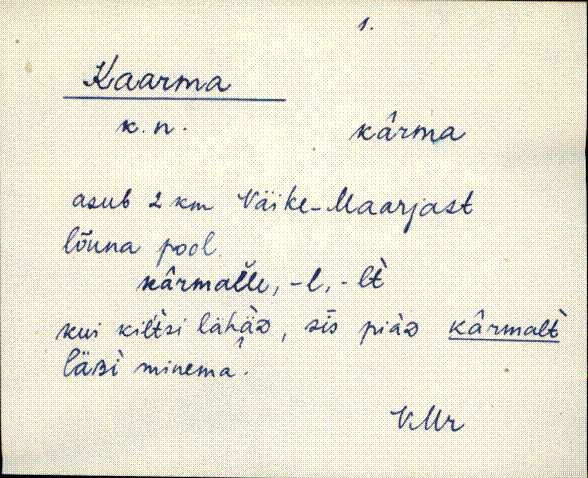 1.
Kaarma
k. n. kârma
asub 2 km Väike-Maarjast
lõuna pool
kârmalle, -l, -lt̀
kui kilt̀si lähäᴅ, sīs piàᴅ kârmalt̀
läʙì minema.
VMr